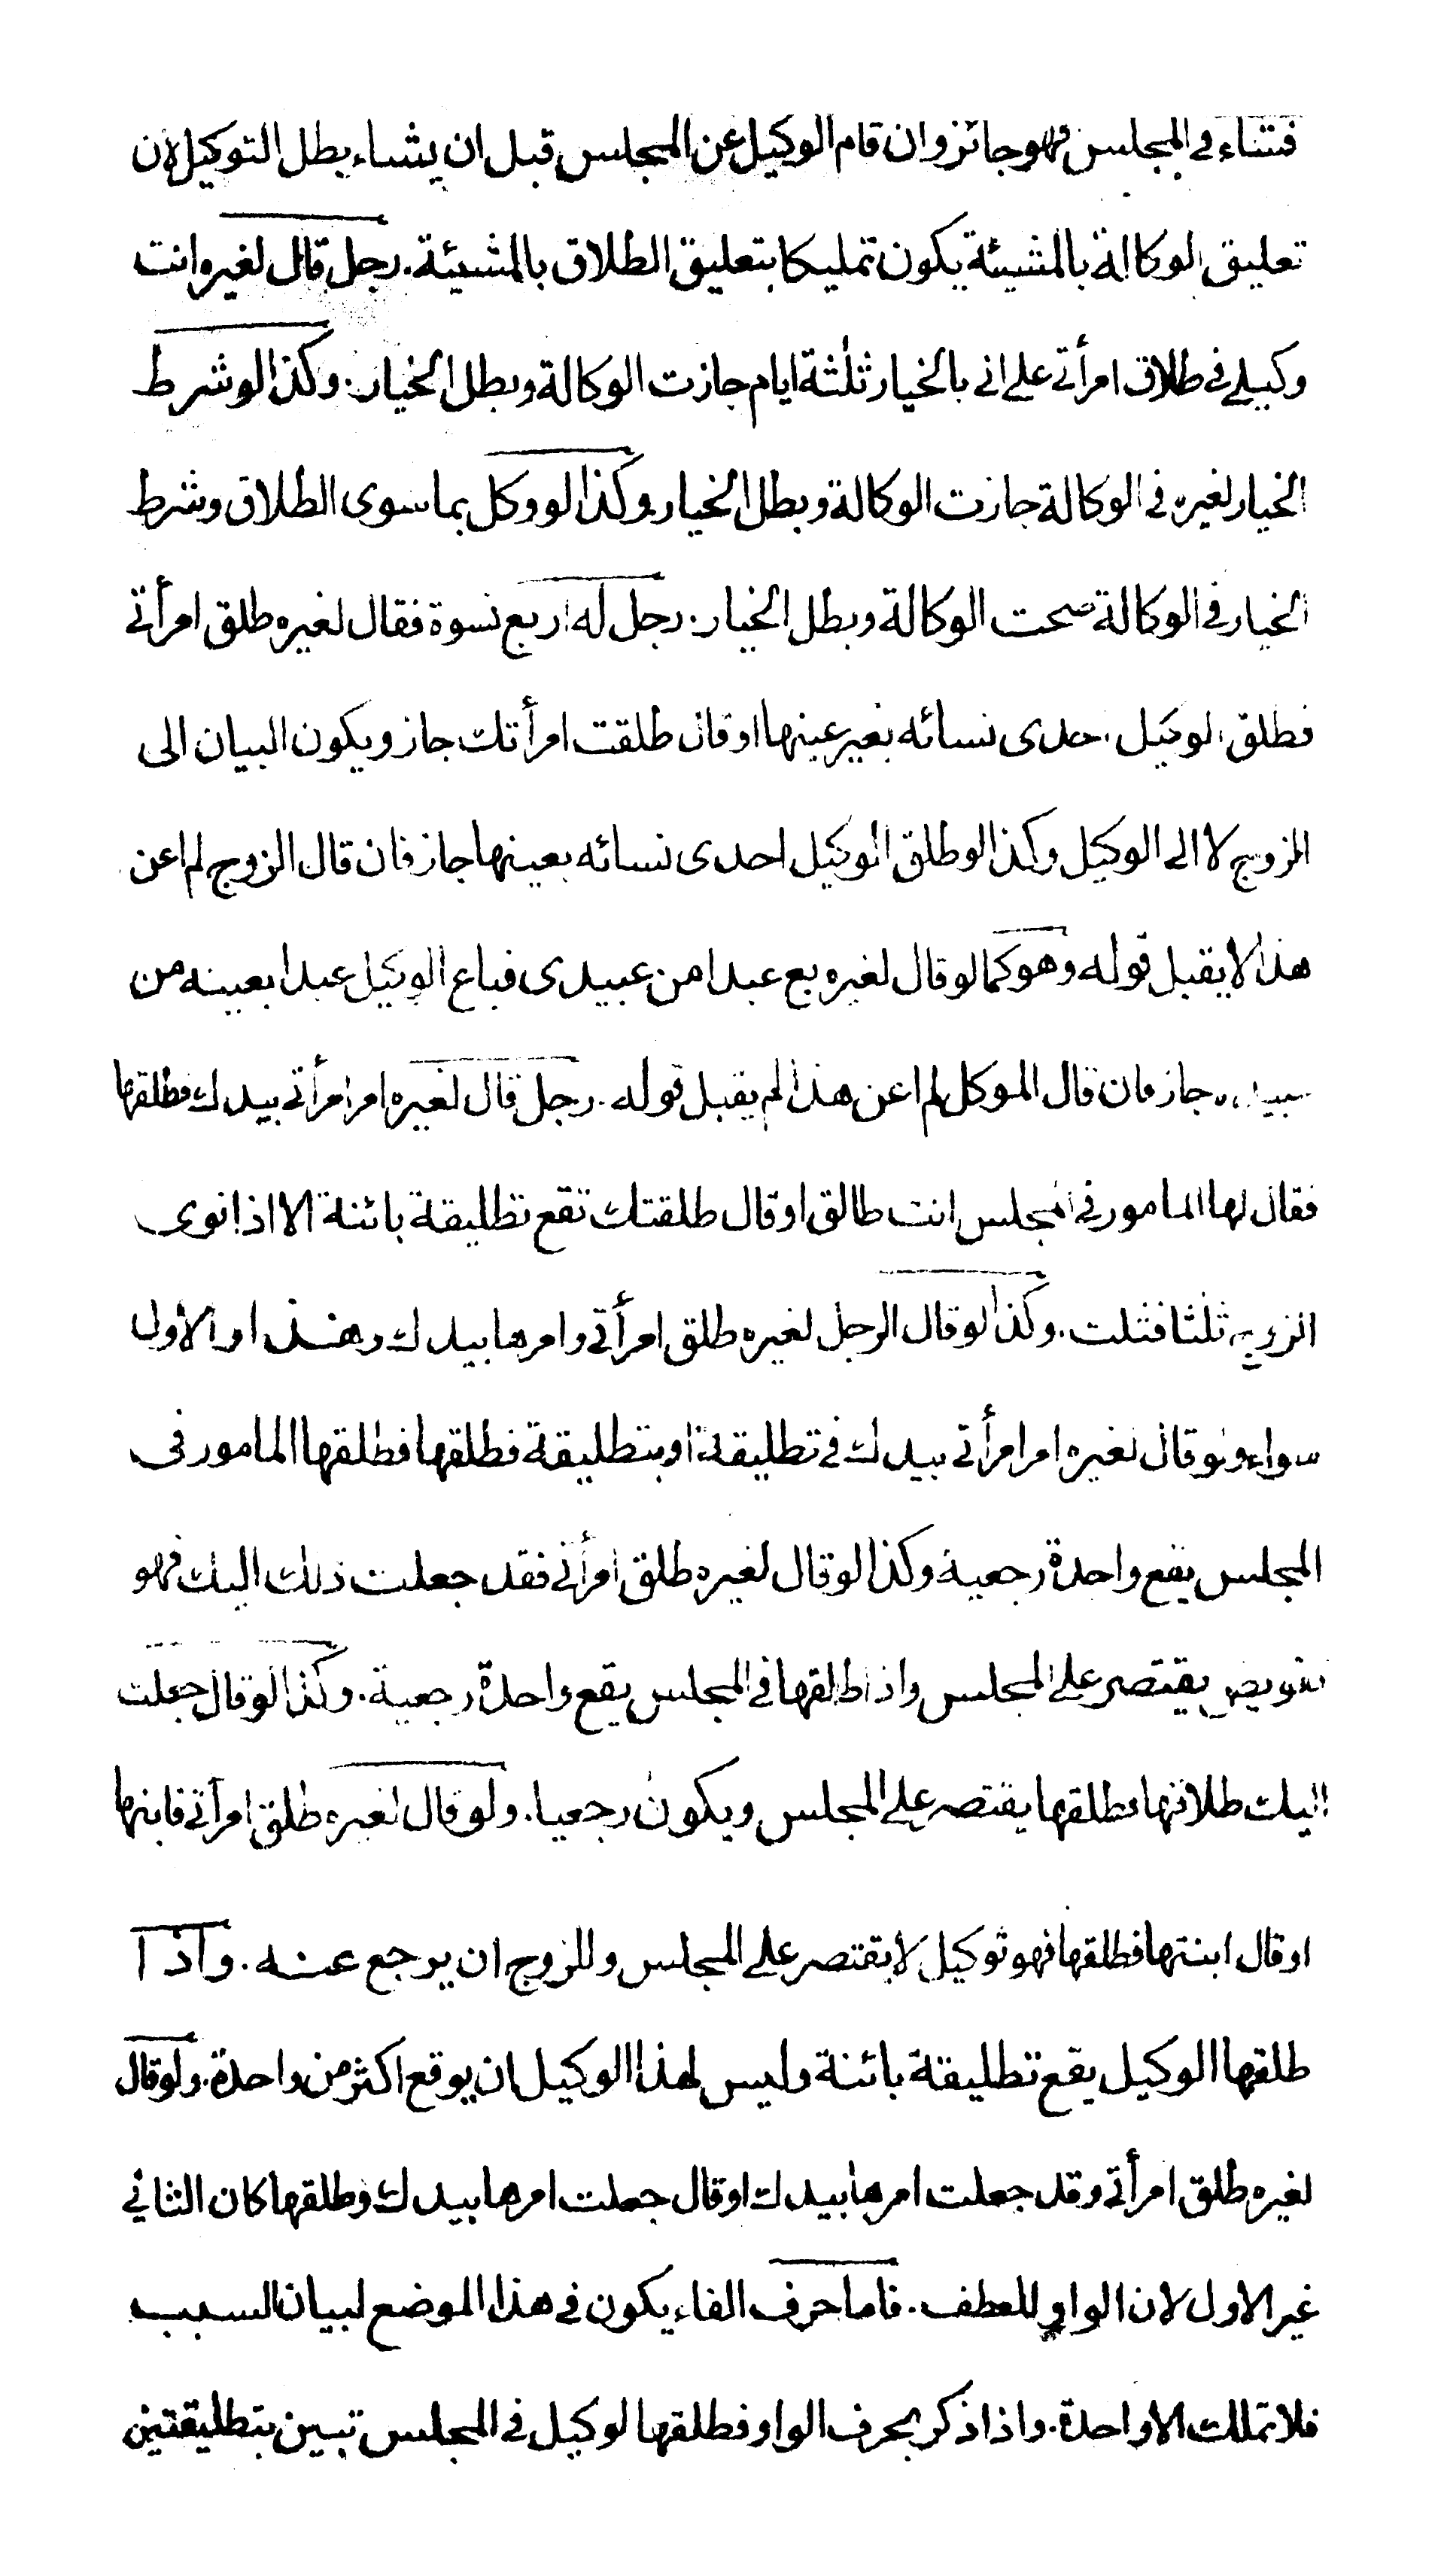 فشاء في المجلس فهو جائز وان قام الوكيل عن المجلس قبل ان يشاء بطل التوكيل لان
تعليق الوكالة بالمشيئة يكون تمليكا بتعليق الطلاق بالمشيئة. رجل قال لغيره انت
وكيلي في طلاق امرأتي على اني بالخيار ثلثة ايام جازت الوكالة وبطل الخيار. وكذا لو شرط
الخيار لغيره في الوكالة جازت الوكالة وبطل الخيار وكذا لو وكل بما سوى الطلاق وشرط
الخيار في الوكالة صحت الوكالة وبطل الخيار. رجل له اربع نسوة فقال لغيره طلق امرأتي
فطلق الوكيل احدى نسائه بغير عينها او قال طلقت امرأتك جاز ويكون البيان الى
الزوج لا الى الوكيل وكذا لو طلق الوكيل احدى نسائه بعينها جاز فان قال الزوج لم اعن
هذا لا يقبل قوله وهو كما لو قال لغيره بع عبدا من عبيدى فباع الوكيل عبدا بعينه من
عبيده جاز فان قال الموكل لم اعن هذا لم يقبل قوله. رجل قال لغيره امر امرأتي بيدك فطلقها
فقال لها المامور في المجلس انت طالق او قال طلقتك تقع تطليقة بائنة الا اذا نوى
الزوج ثلثا فثلث. وكذا لو قال الرجل لغيره طلق امرأتي وامرها بيدك وهذا والاول
سواء ولو قال لغيره امر امرأتي بيدك في تطليقة او بتطليقة فطلقها فطلقها المامور في
المجلس يقع واحدة رجعية وكذا لو قال لغيره طلق امرأتي فقد جعلت ذلك اليك فهو
تفويض يقتصر على المجلس واذا طلقها في المجلس يقع واحدة رجعية. وكذا لو قال جعلت
اليك طلاقها فطلقها يقتصر على المجلس ويكون رجعيا. ولو قال لغيره طلق امرأتي فابنها
او قال ابنتها فطلقها فهو توكيل لا يقتصر على المجلس وللزوج ان يرجع عنه. واذا
طلقها الوكيل يقع تطليقة بائنة وليس لهذا الوكيل ان يوقع اكثر من واحدة. ولو قال
لغيره طلق امرأتي وقد جعلت امرها بيدك او قال جعلت امرها بيدك وطلقها كان الثاني
غير الاول لان الواو للعطف. فاما حرف الفاء يكون في هذا الموضع لبيان السبب
فلا تملك الا واحدة. واذا ذكر بحرف الواو فطلقها لوكيل في المجلس تبين بتطليقتين